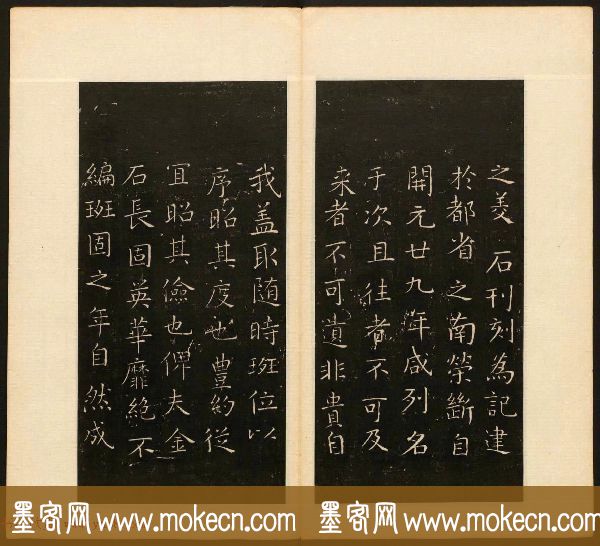 之美 石刊刻為記建
於都省之南榮斷自
開元廿九年咸列名
于次且往者不可及
来者不可遺非貴自
我盖取随時班位以
序昭其度也豊約従
宜昭其儉也俾夫金
石長固英華靡絶不
編班固之年自然成
墨客网 www.mokecn.com 墨客网 www.mokecn.com